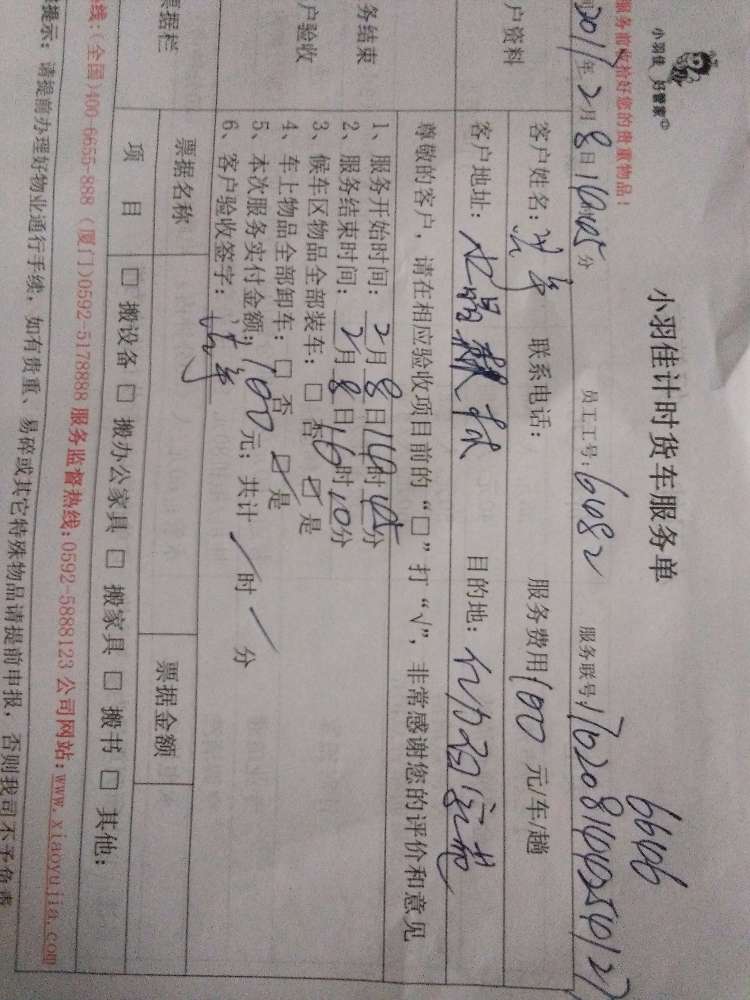 小羽佳 好管家
小羽佳计时货车服务单
6606
服务前收拾好您的贵重物品！
2017年2月8日 分 员工工号：6482 服务联号：
户资料
客户姓名： 联系电话： 服务费用100元/车/趟
客户地址： 目的地：
尊敬的客户，请在相应验收项目前的“□”打“√”，非常感谢您的评价和意见
务结束
户验收
1、服务开始时间：2月8日 时 分
2、服务结束时间：2月8日16时10分
3、候车区物品全部装车：□ 否 ☑ 是
4、车上物品全部卸车：□ 否 ☑ 是
5、本次服务实付金额：100元；共计 / 时 / 分
6、客户验收签字：
票据栏
票据名称 票据金额
项 目 □ 搬设备 □ 搬办公家具 □ 搬家具 □ 搬书 □ 其他：
线：(全国)400-6655-888 (厦门)0592-5178888 服务监督热线：0592-5888123 公司网站：www.xiaoyujia.com
提示：请提前办理好物业通行手续，如有贵重、易碎或其它特殊物品请提前申报，否则我司不予负责